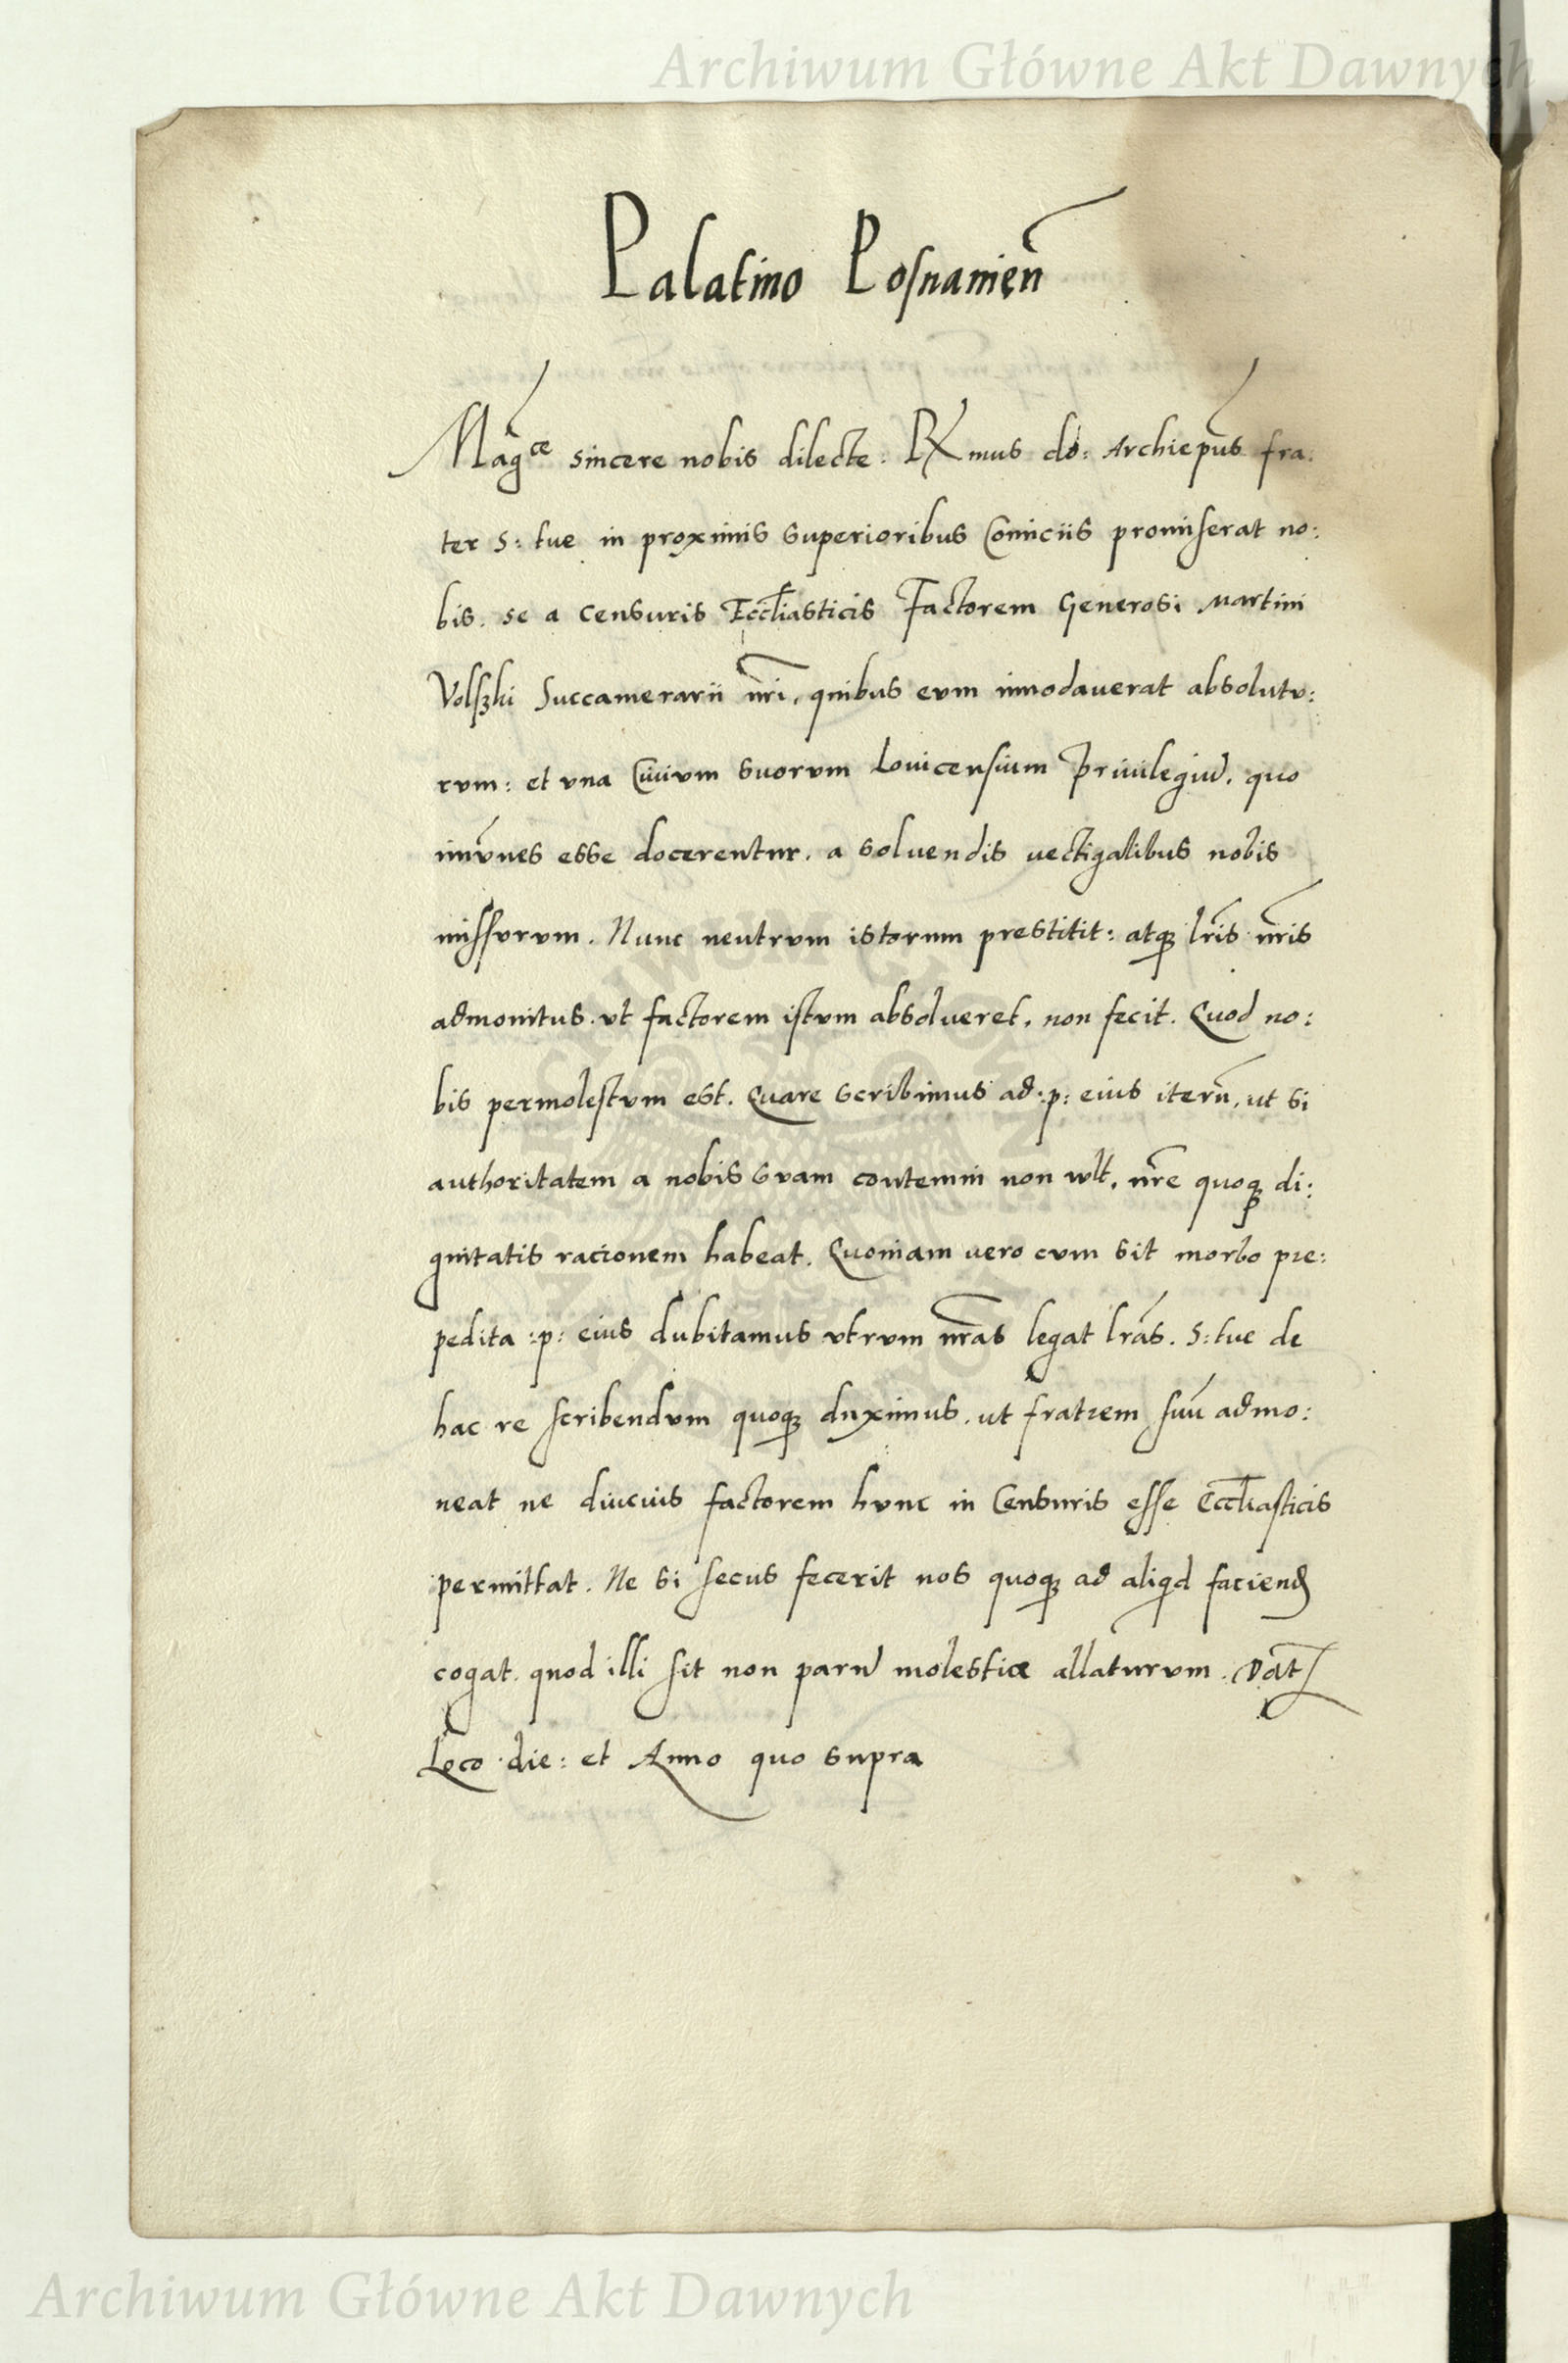 Archiwum Główne Akt Dawnych
Palatino Posnanien̄
Magce sincere nobis dilecte: Rx̄mus do: Archiep̄us fra:
ter s: tue in proximis superioribus Comiciis promiserat no:
bis. se a censuris Eccl̄iasticis Factorem Generosi Martini
Volszki Succamerarii nr̄i, quibus eum innodauerat absolutu:
rum: et una Ciuium suorum Louicensium Priuilegiu̅. quo
imu̅nes esse docerentur. a soluendis uectigalibus nobis
missurum. Nunc neutrum istorum prestitit: atqȝ lr̄is nr̄is
admonitus. ut factorem istum absolueret, non fecit. Quod no:
bis permolestum est. Quare scribimus ad :p: eius iteru̅, ut si
authoritatem a nobis suam contemni non vult, nr̄e quoqȝ di:
gnitatis racionem habeat. Quoniam vero cum sit morbo pre:
pedita :p: eius dubitamus utrum nr̄as legat lr̄as. S: tue de
hac re scribendum quoqȝ duximus, ut fratrem suu̅ admo:
neat ne diucius factorem hunc in Censuris esse Eccl̄iasticis
permittat. Ne si secus fecerit nos quoqȝ ad aliqid faciend
cogat. quod illi sit non paru̅ molestiæ allaturum. Dat̄
Loco die: et Anno quo supra
Archiwum Główne Akt Dawnych